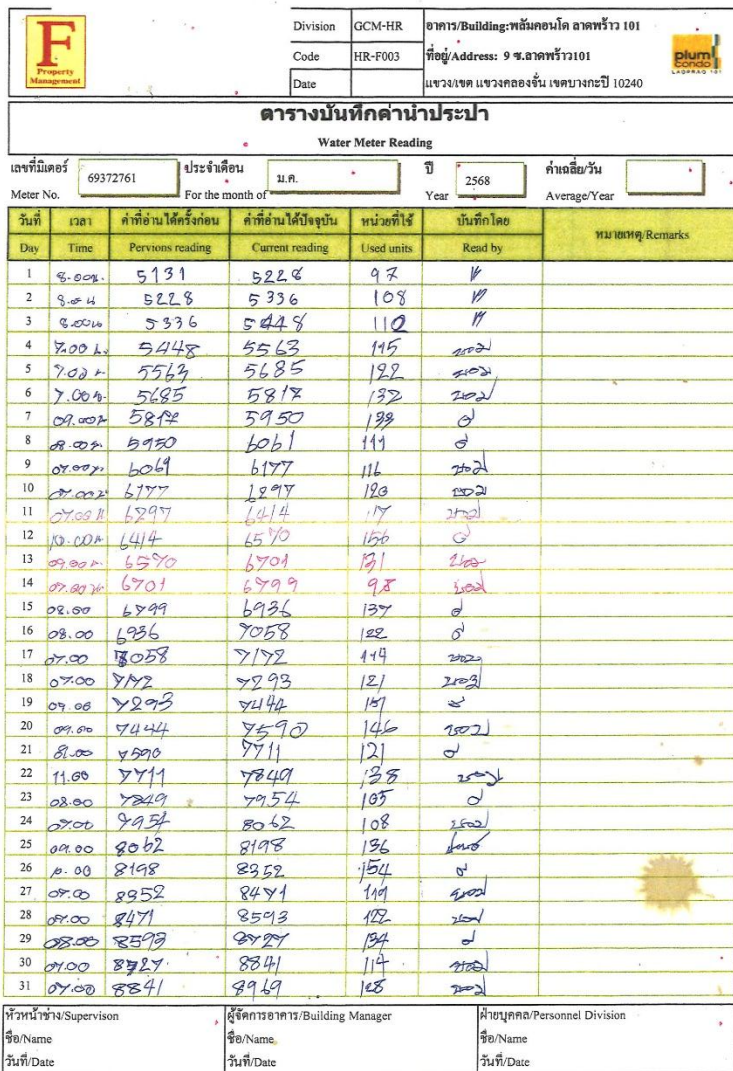 F
Property
Management
Division GCM-HR อาคาร/Building:พลัมคอนโด ลาดพร้าว 101
Code HR-F003 ที่อยู่/Address: 9 ซ.ลาดพร้าว101
Date แขวง/เขต แขวงคลองจั่น เขตบางกะปิ 10240
plum
condo
LADPRAO 101
ตารางบันทึกค่าน้ำประปา
Water Meter Reading
เลขที่มิเตอร์ 69372761 ประจำเดือน ม.ค. ปี 2568 ค่าเฉลี่ย/วัน
Meter No. For the month of Year Average/Year
วันที่ เวลา ค่าที่อ่านได้ครั้งก่อน ค่าที่อ่านได้ปัจจุบัน หน่วยที่ใช้ บันทึกโดย หมายเหตุ/Remarks
Day Time Pervions reading Current reading Used units Read by
1 8.00น. 5131 5228 97
2 5228 5336 108
3 8.00น 5336 5448 110
4 7.00 น. 5448 5563 115
5 7.00 น. 5563 5685 122
6 7.00น. 5685 5817 132
7 09.00น 5817 5950 133
8 08.00น. 5950 6061 111
9 07.00น. 6061 6177 116
10 07.00น 6177 6297 120
11 07.00 น 6297 6414 117
12 10.00น. 6414 6570 156
13 09.00น. 6570 6701 131
14 07.00น 6701 6799 98
15 08.00 6799 6936 137
16 08.00 6936 7058 122
17 07.00 7058 7172 114
18 07.00 7172 7293 121
19 09.00 7293 7444 151
20 09.00 7444 7590 146
21 7590 7711 121
22 11.00 7711 7849 138
23 08.00 7849 7954 105
24 07.00 7954 8062 108
25 09.00 8062 8198 136
26 10.00 8198 8352 154
27 07.00 8352 8471 119
28 07.00 8471 8593 122
29 08.00 8593 8727 134
30 07.00 8727 8841 114
31 07.00 8841 8969 128
หัวหน้าช่าง/Supervison ผู้จัดการอาคาร/Building Manager ฝ่ายบุคคล/Personnel Division
ชื่อ/Name ชื่อ/Name ชื่อ/Name
วันที่/Date วันที่/Date วันที่/Date